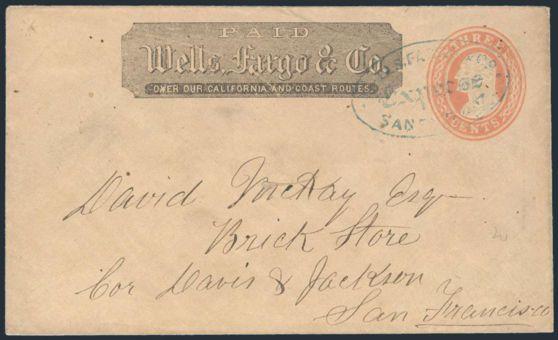 PAID
Wells, Fargo & Co.
OVER OUR CALIFORNIA AND COAST ROUTES.
THREE
CENTS
SAN
David Esq
Brick Store
Cor Davis & Jackson
San Francisco